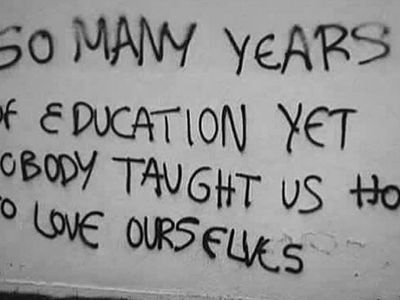 SO MANY YEARS
OF EDUCATION YET
NOBODY TAUGHT US HO
TO LOVE OURSELVES